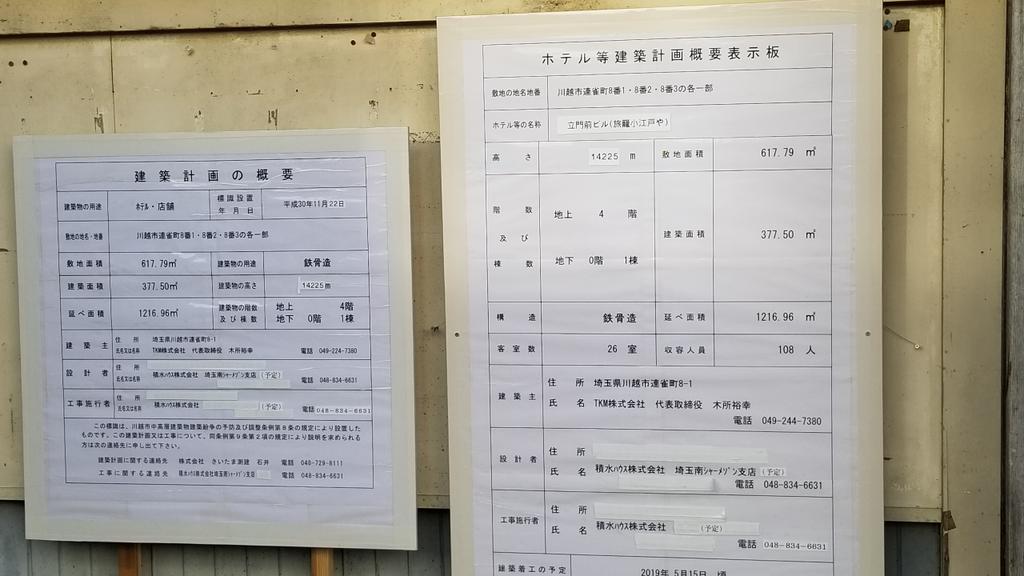 建築計画の概要
建築物の用途 ホテル・店舗 標識設置年月日 平成30年11月22日
敷地の地名・地番 川越市連雀町8番1・8番2・8番3の各一部
敷地面積 617.79㎡ 建築物の用途 鉄骨造
建築面積 377.50㎡ 建築物の高さ 14225m
延べ面積 1216.96㎡ 建築物の階数及び棟数 地上 4階 地下 0階 1棟
建築主 住所 埼玉県川越市連雀町8-1
氏名又は名称 TKM株式会社 代表取締役 木所裕幸 電話 049-224-7380
設計者 住所
氏名又は名称 積水ハウス株式会社 埼玉南シャーメゾン支店 (予定) 電話 048-834-6631
工事施行者 住所
氏名又は名称 積水ハウス株式会社 (予定) 電話 048-834-6631
この標識は、川越市中高層建築物建築紛争の予防及び調整条例第8条の規定により設置した
ものです。この建築計画又は工事について、同条例第9条第2項の規定により説明を求められる
方は次の連絡先に申し出て下さい。
建築計画に関する連絡先 株式会社 さいたま測建 石井 電話 048-729-8111
工事に関する連絡先 積水ハウス株式会社埼玉南シャーメゾン支店 電話 048-834-6631
ホテル等建築計画概要表示板
敷地の地名地番 川越市連雀町8番1・8番2・8番3の各一部
ホテル等の名称 立門前ビル(旅籠小江戸や)
高さ 14225 m 敷地面積 617.79 ㎡
階数及び棟数 地上 4 階 地下 0階 1棟 建築面積 377.50 ㎡
構造 鉄骨造 延べ面積 1216.96 ㎡
客室数 26 室 収容人員 108 人
建築主 住所 埼玉県川越市連雀町8-1
氏名 TKM株式会社 代表取締役 木所裕幸
電話 049-244-7380
設計者 住所
氏名 積水ハウス株式会社 埼玉南シャーメゾン支店 (予定)
電話 048-834-6631
工事施行者 住所
氏名 積水ハウス株式会社 (予定)
電話 048-834-6631
建築着工の予定 2019年 5月15日 頃